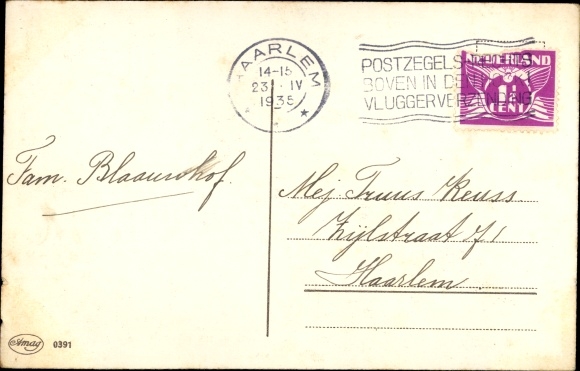 HAARLEM
14-15
23 IV
1935
POSTZEGELS
BOVEN IN DE
VLUGGER VERZENDING
NEDERLAND
1½
CENT
Fam. Blaauwhof.
Mej Truus Keuss.
Zijlstraat
Haarlem.
Amag 0391